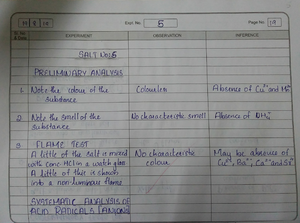 Expt. No. 5
Page No.
EXPERIMENT OBSERVATION INFERENCE
SALT No:5
PRELIMINARY ANALYSIS
1. Note the colour of the Colourless Absence of Cu²⁺ and
substance
2. Note the smell of the No characteristic smell Absence of NH₄⁺
substance
3. FLAME TEST
A little of the salt is mixed No characteristic May be absence of
with conc HCl in a watch glass colour Cu²⁺, Ba²⁺, Ca²⁺ and Sr²⁺
A little of this is shown
into a non luminous flame
SYSTEMATIC ANALYSIS OF
ACID RADICALS (ANIONS)